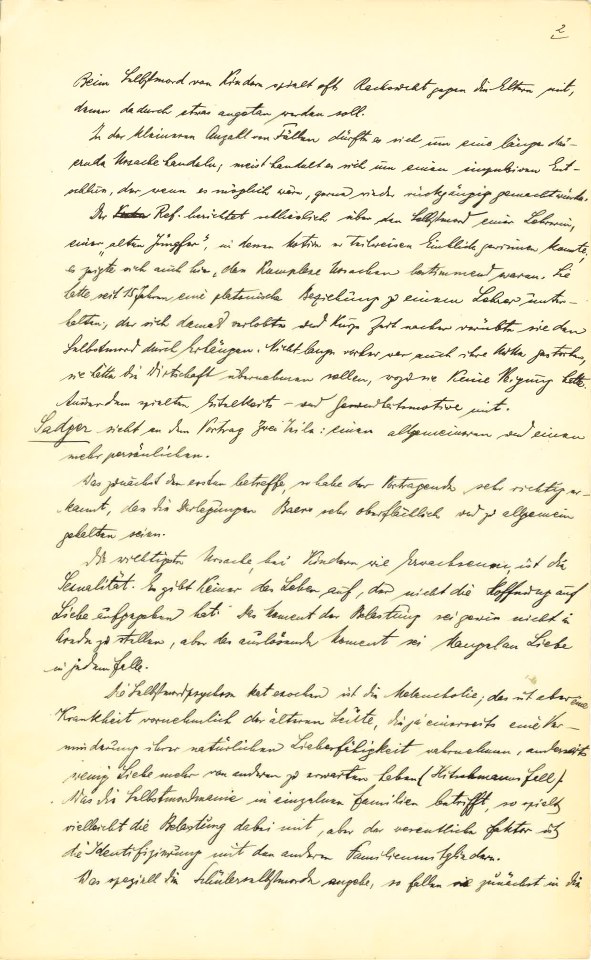 2
Beim Selbstmord von Kindern spielt oft Rachsucht gegen die Eltern mit,
denen dadurch etwas angetan werden soll.
In der kleineren Anzahl von Fällen dürfte es sich um eine länger dau-
ernde Ursache handeln; meist handelt es sich um einen impulsiven Ent-
schluss, der wenn es möglich wäre, gerne wieder rückgängig gemacht würde.
Der Ref. berichtet schliesslich über den Selbstmord einer Lehrerin,
einer „alten Jungfer", in deren Motive er teilweisen Einblick gewinnen konnte;
es zeigte sich auch hier, dass komplexe Ursachen bestimmend waren. Sie
hatte seit 15 Jahren eine platonische Beziehung zu einem Lehrer unter-
halten, der sich damals verlobte und kurze Zeit nachher verübte sie den
Selbstmord durch Erhängen. Nicht lange vorher war auch ihre Mutter gestorben,
sie hätte die Wirtschaft übernehmen sollen, wozu sie keine Neigung hatte.
Ausserdem spielten Eitelkeits- und Gesundheitsmotive mit.
Sadger sieht an dem Vortrag zwei Teile: einen allgemeineren und einen
mehr persönlichen.
Was zunächst den ersten betreffe, so habe der Vortragende sehr richtig er-
kannt, dass die Darlegungen Baers sehr oberflächlich und zu allgemein
gehalten seien.
Die wichtigste Ursache, bei Kindern wie Erwachsenen, ist die
Sexualität. Es gibt keiner das Leben auf, der nicht die Hoffnung auf
Liebe aufgegeben hat. Das Moment der Belastung sei gewiss nicht in
Abrede zu stellen, aber das auslösende Moment sei Mangel an Liebe
in jedem Falle.
Die Selbstmordpsychose kat exochen ist die Melancholie; das ist aber eine
Krankheit vornehmlich der älteren Leute, die ja einerseits eine Ver-
minderung ihrer natürlichen Liebesfähigkeit wahrnehmen, anderseits
wenig Liebe mehr von anderen zu erwarten haben (Hitschmanns Fall).
Was die Selbstmordmanie in einzelnen Familien betrifft, so spielt
vielleicht die Belastung dabei mit, aber der wesentliche Faktor ist
die Identifizierung mit den anderen Familienmitgliedern.
Was speziell die Schülerselbstmorde angehe, so fallen sie zunächst in die